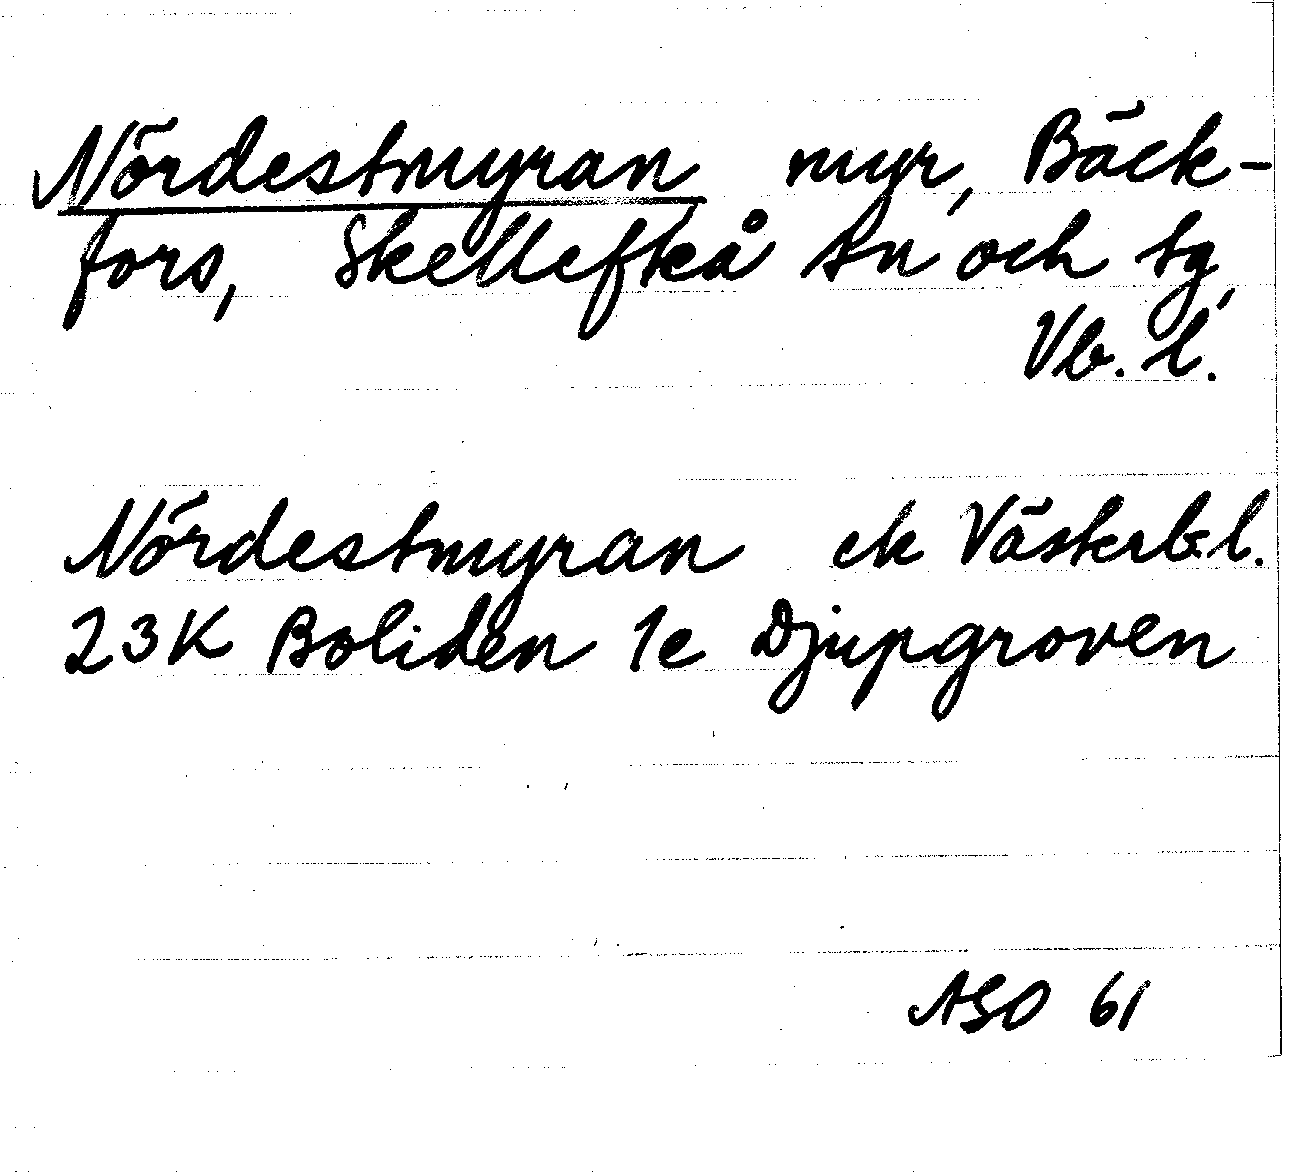 Nördestmyran myr, Bäck-
fors, Skellefteå sn och tg,
Vb. l.
Nördestmyran ek Västerb.l.
23K Boliden 1e Djupgroven
ASO 61